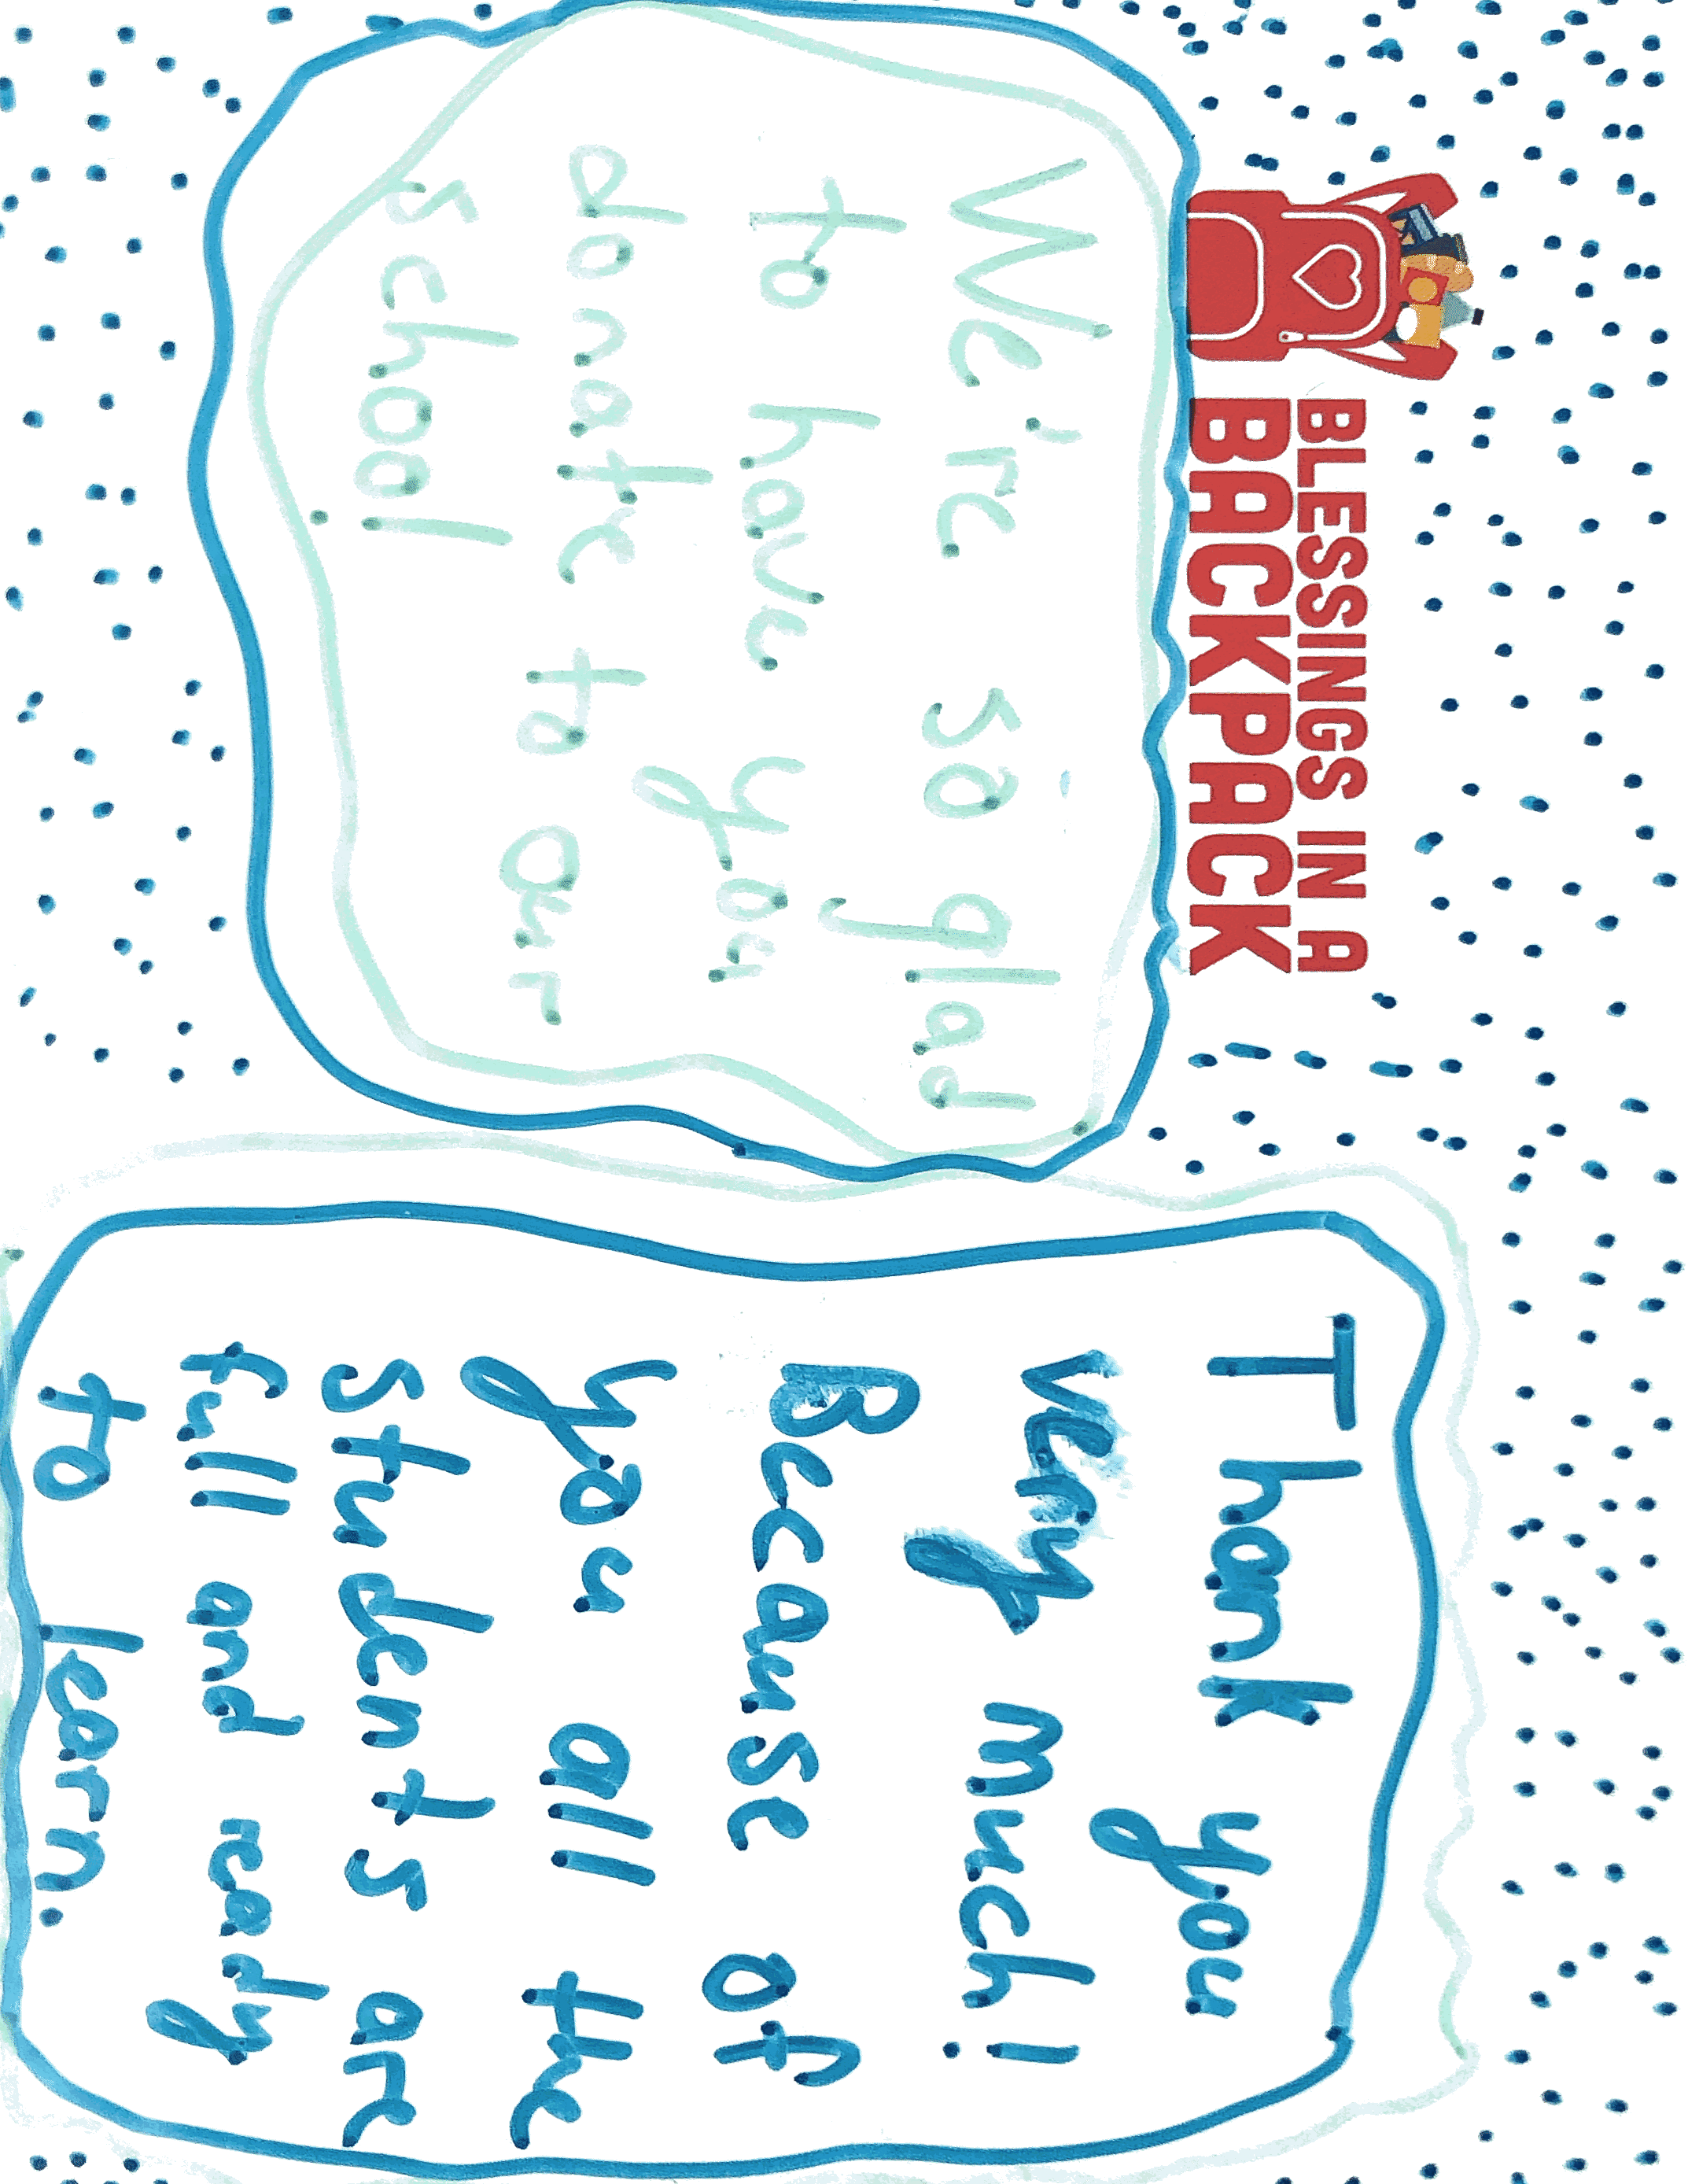 BLESSINGS IN A
BACKPACK
We're so glad
to have you
donate to our
school!
Thank you
very much!
Because of
you all the
students are
full and ready
to learn.